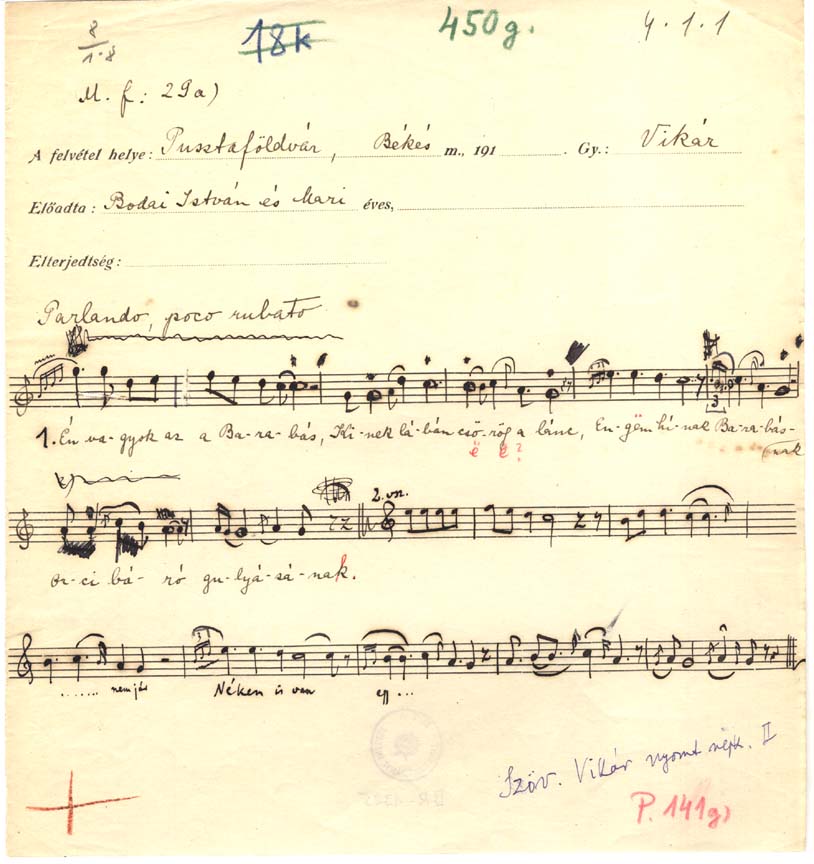 8
1·8
18k
450g.
4.1.1
M. f.: 29a)
A felvétel helye: Pusztaföldvár, Békés m., 191 . Gy.: Vikár
Előadta: Bodai István és Mari éves,
Elterjedtség:
Parlando, poco rubato
3
1. Én va-gyok az a Ba-ra-bás, Ki-nek lá-bán csö-rög a lánc, En-gëm hí-nak Ba-ra-bás-
ë ë?
nak
2. vsz.
or-ci bá-ró gu-lyá-sá-nak.
3
....... nem jár Néken is van egy ...
Szöv. Vikár nyomt népk. II
P. 141g)